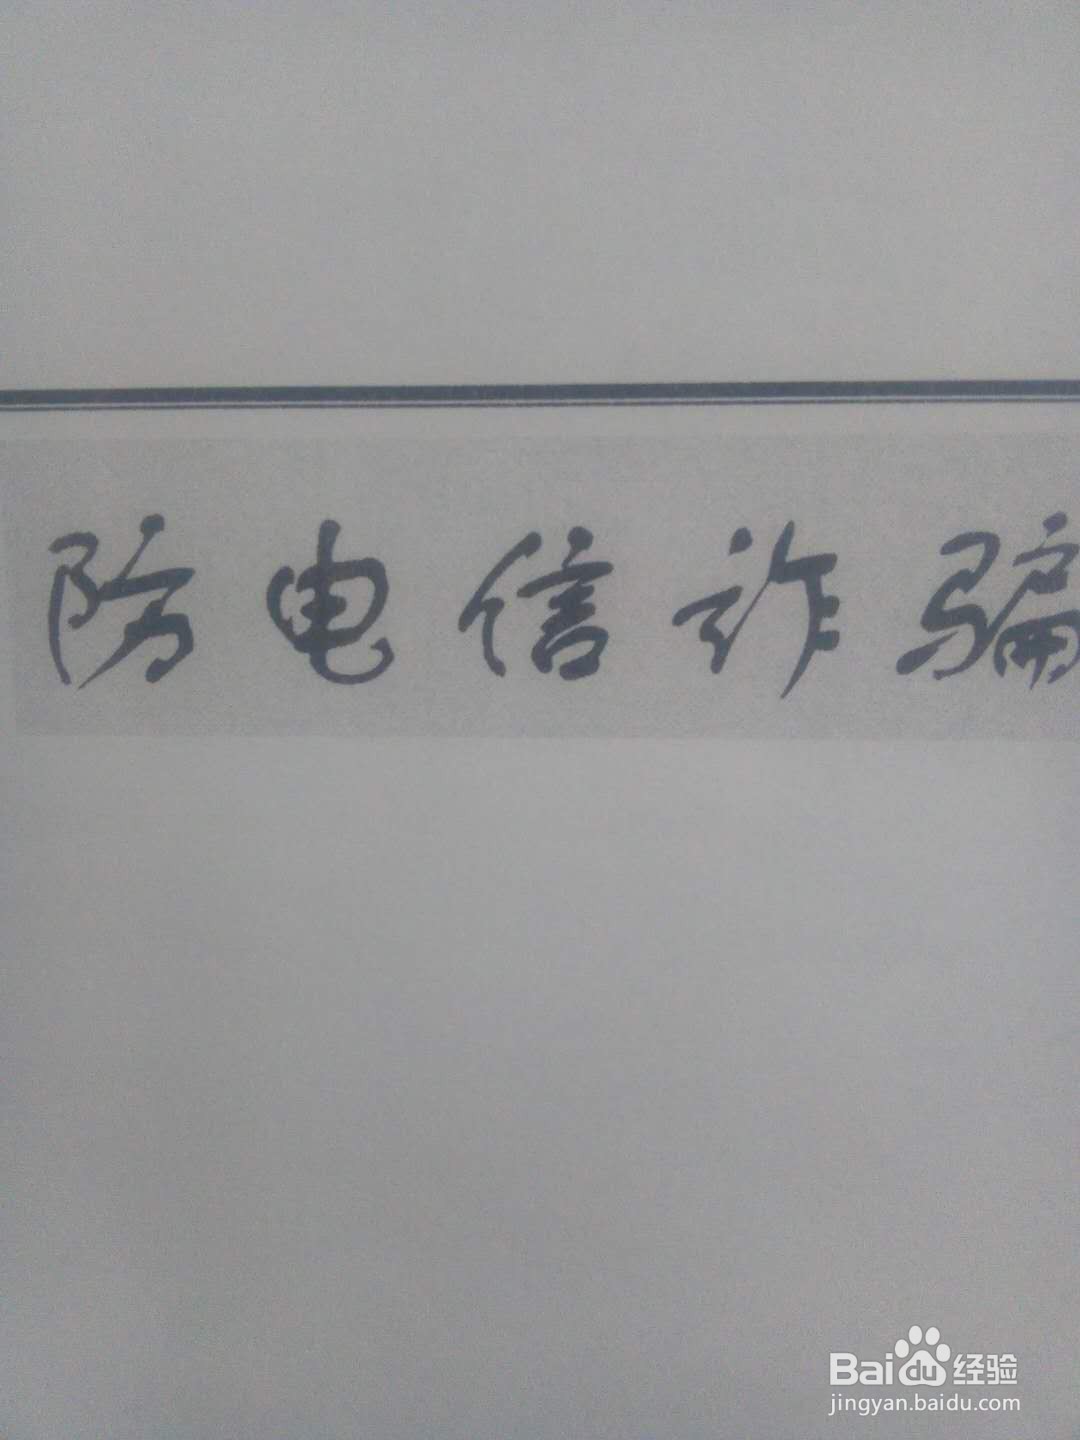 防电信诈骗
Baidu经验
jingyan.baidu.com